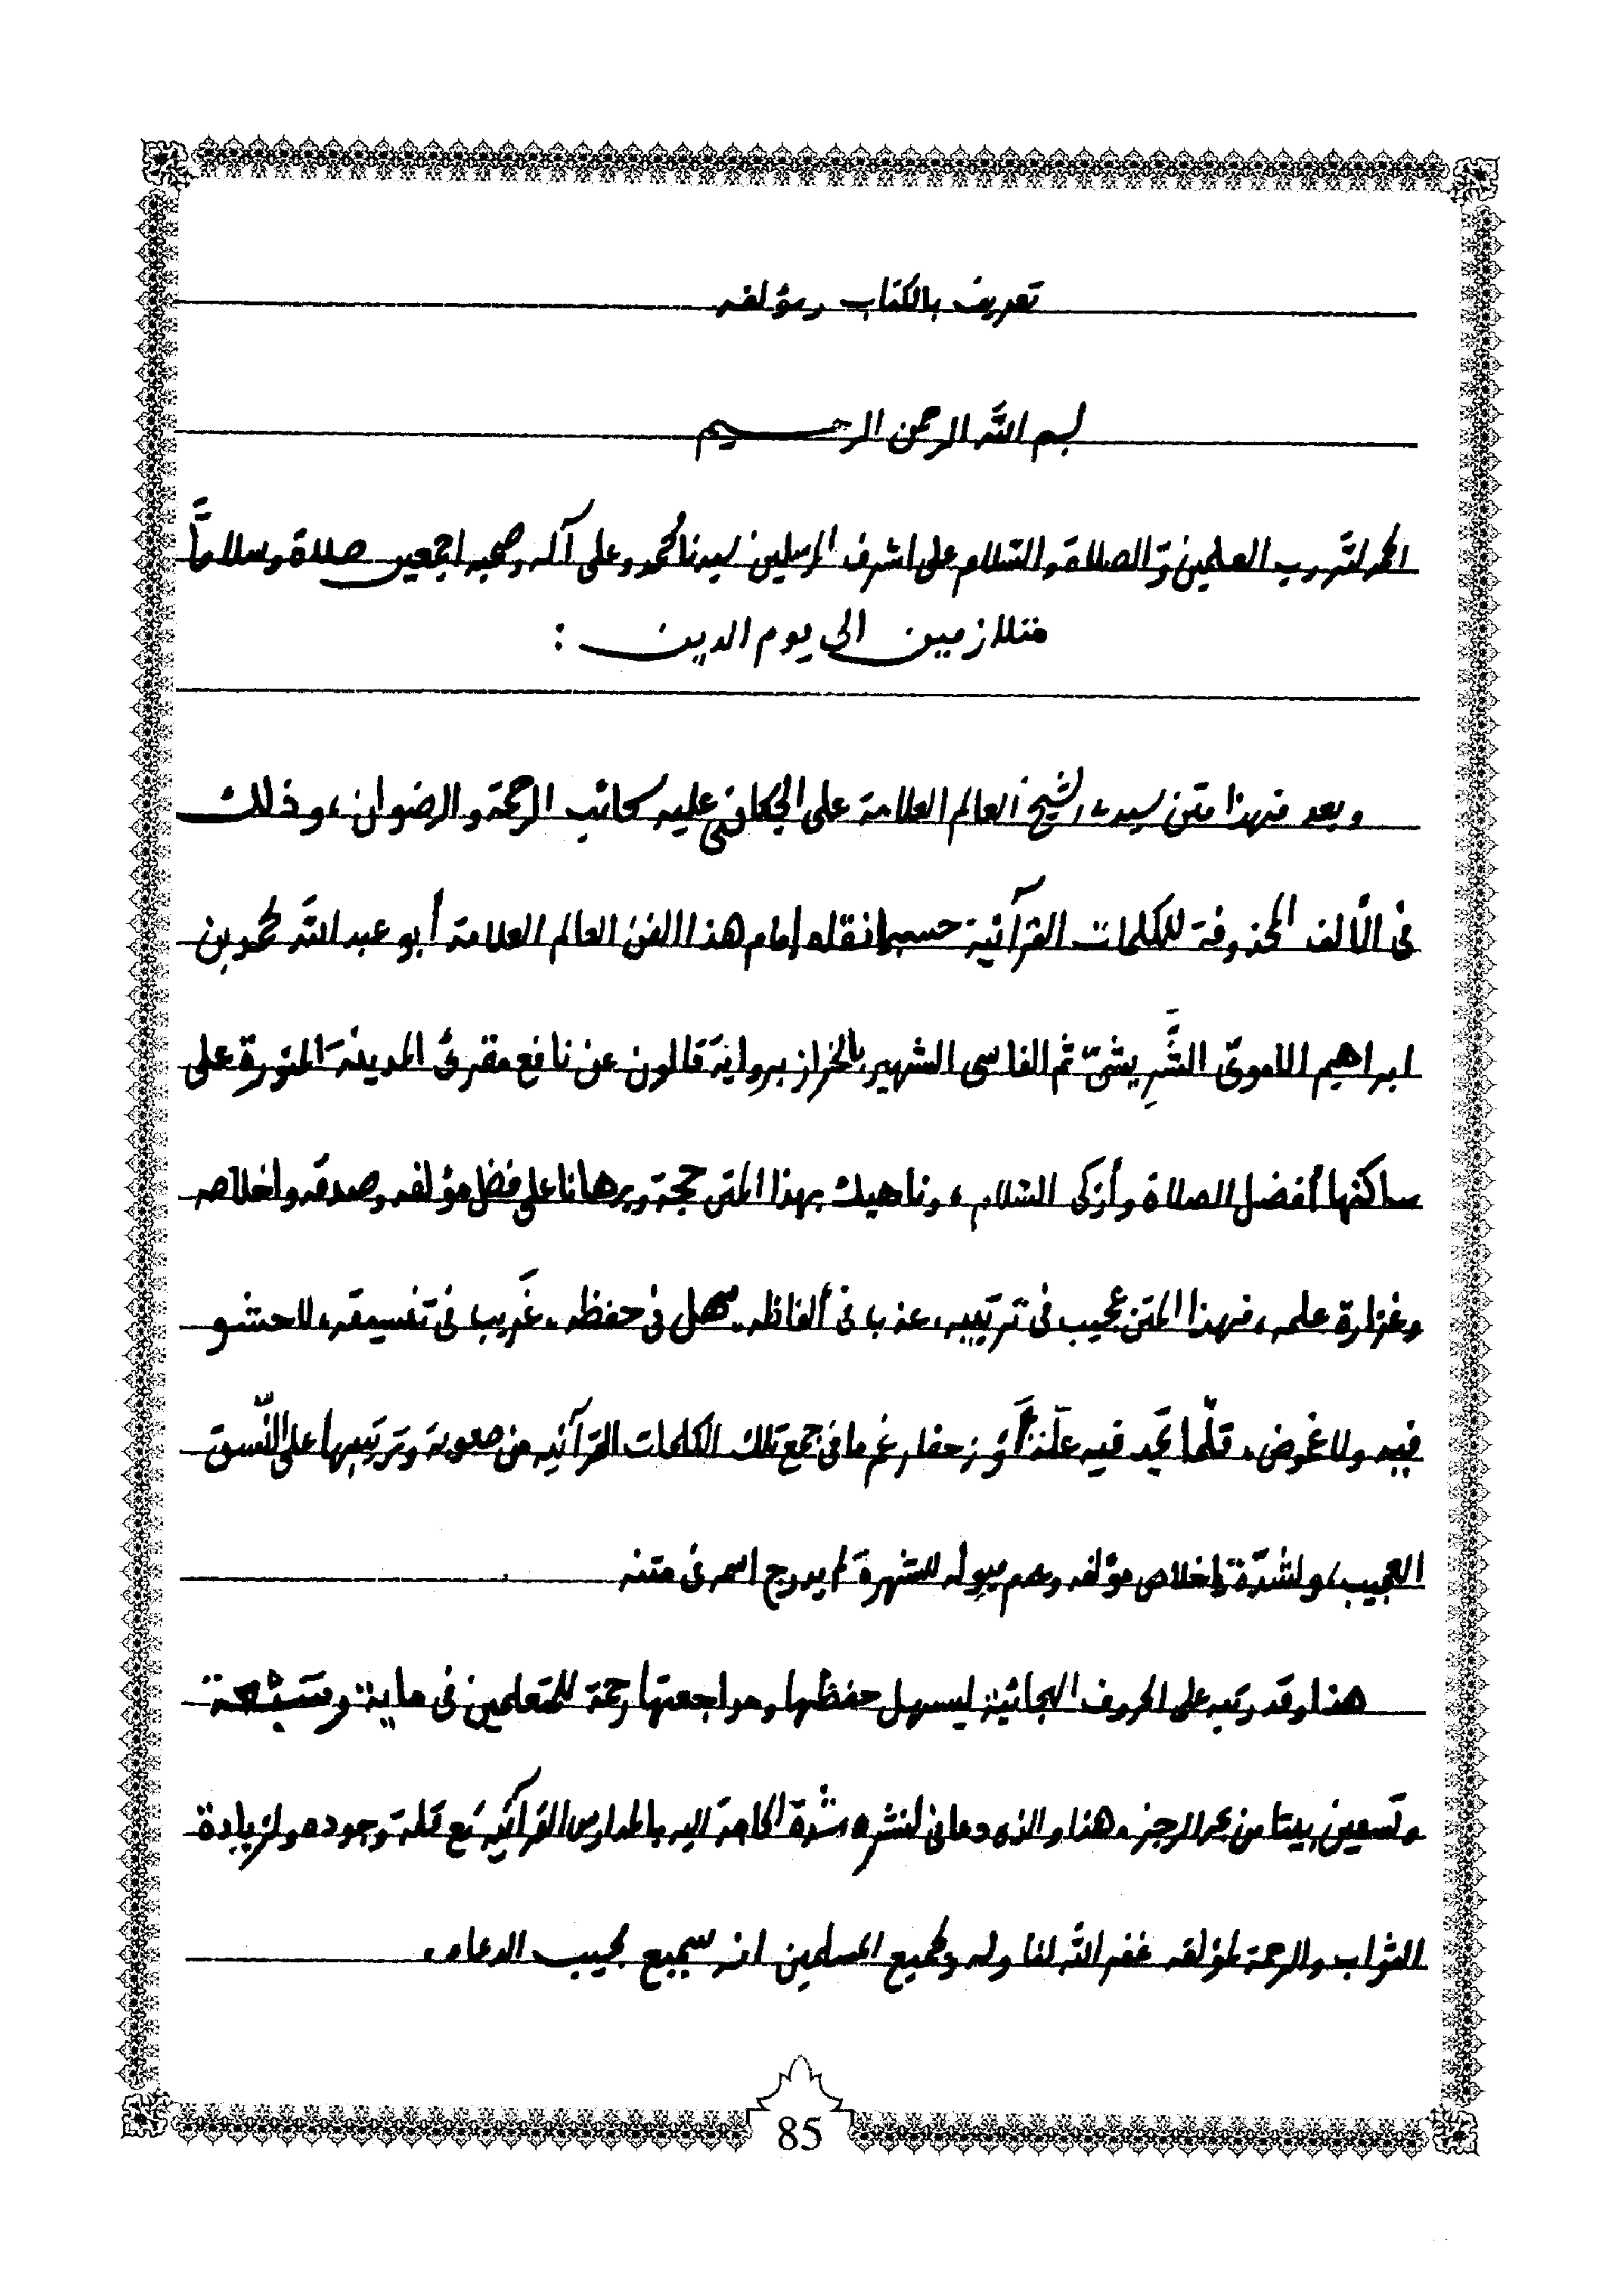 تعريف بالكتاب ومؤلفه
بسم الله الرحمن الرحيم
الحمد لله رب العلمين والصلاة والسّلام على اشرف المرسلين سيدنا محمد وعلى آله وصحبه اجمعين صلاة وسلاماً
متلازمين الى يوم الدين :
وبعد فهذا متن سيدي الشيخ العالم العلامة على الجكاني عليه سحائب الرحمة والرضوان، وذلك
فى الألف المحذوفة للكلمات القرآنية حسبما نقله إمام هذا الفن العالم العلامة أبو عبد الله محمد بن
ابراهيم الاموىّ الشَّرِيشىّ ثم الفاسى الشهير بالخراز برواية قالون عن نافع مقرئ المدينة المنورة على
ساكنها أفضل الصلاة وأزكى السّلام، وناهيك بهذا المتن حجة وبرهانا على فضل مؤلفه وصدقه واخلاصه
وغزارة علمه، فهذا المتن عجيب فى ترتيبه، عذب فى ألفاظه. سهل فى حفظه. غريب فى تنسيقه، لا حشو
فيه ولا غموض. قلّما تجد فيه علّة أو زحفا رغم ما فى جمع تلك الكلمات القرآنية من صعوبة وترتيبها على النّسق
العجيب، ولشدّة إخلاص مؤلفه وعدم ميوله للشهرة لم يدرج اسمه فى متنه
هذا وقد رتبه على الحروف الهجائية ليسهل حفظها ومراجعتها رحمة للمتعلمين فى ماية
وتسعين بيتا من بحر الرجز. هذا والذى دعانى لنشره شدة الحاجة اليه بالمدارس القرآنية مع قلة وجوده ولزيادة
الثواب والرحمة لمؤلفه غفر الله لنا وله ولجميع المسلمين انه سميع مجيب الدعاء.
85